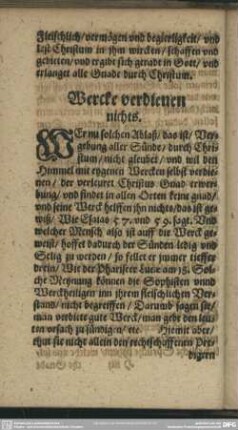 Fleischlich/ vermögen vnd begierligkeit/ vnd
lest Christum in jhm wircken/ schaffen vnd
gebieten/ vnd ergibt sich gerade in Gott/ vnd
erlanget alle Gnade durch Christum.
Wercke verdienen
nichts.
WEr nu solchen Ablaß/ das ist/ Ver-
gebung aller Sünde/ durch Chri-
stum/ nicht gleubet/ vnd wil den
Himmel mit eygenen Wercken selbst verdie-
nen/ der verleuret Christus Gnad erwer-
bung/ vnd findet in allen Orten keine gnad/
vnd seine Werck helffen jhn nichts/ das ist ge-
wiß/ Wie Esaias 57. vnd 59. sagt. Vnd
welcher Mensch also ist auff die Werck ge-
weist/ hoffet dadurch der Sünden ledig vnd
Selig zu werden/ so fellet er jmmer tieffer
drein/ Wie der Phariseer Luce am 18. Sol-
che Meynung können die Sophisten vnnd
Werckheiligen inn jhrem fleischlichen Ver-
stand/ nicht begreiffen/ Darumb sagen sie/
man verbiete gute Werck/ man gebe den leu-
ten vrsach zu sündigen/ etc. Hiemit aber/
thut sie nicht allein den rechtschaffenen Pre-
digern